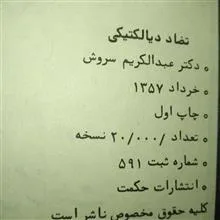 تضاد دیالکتیکی
• دکتر عبدالکریم سروش
• خرداد ۱۳۵۷
• چاپ اول
• تعداد /۲۰/۰۰۰ نسخه
• شماره ثبت ۵۹۱
• انتشارات حکمت
کلیه حقوق مخصوص ناشر است